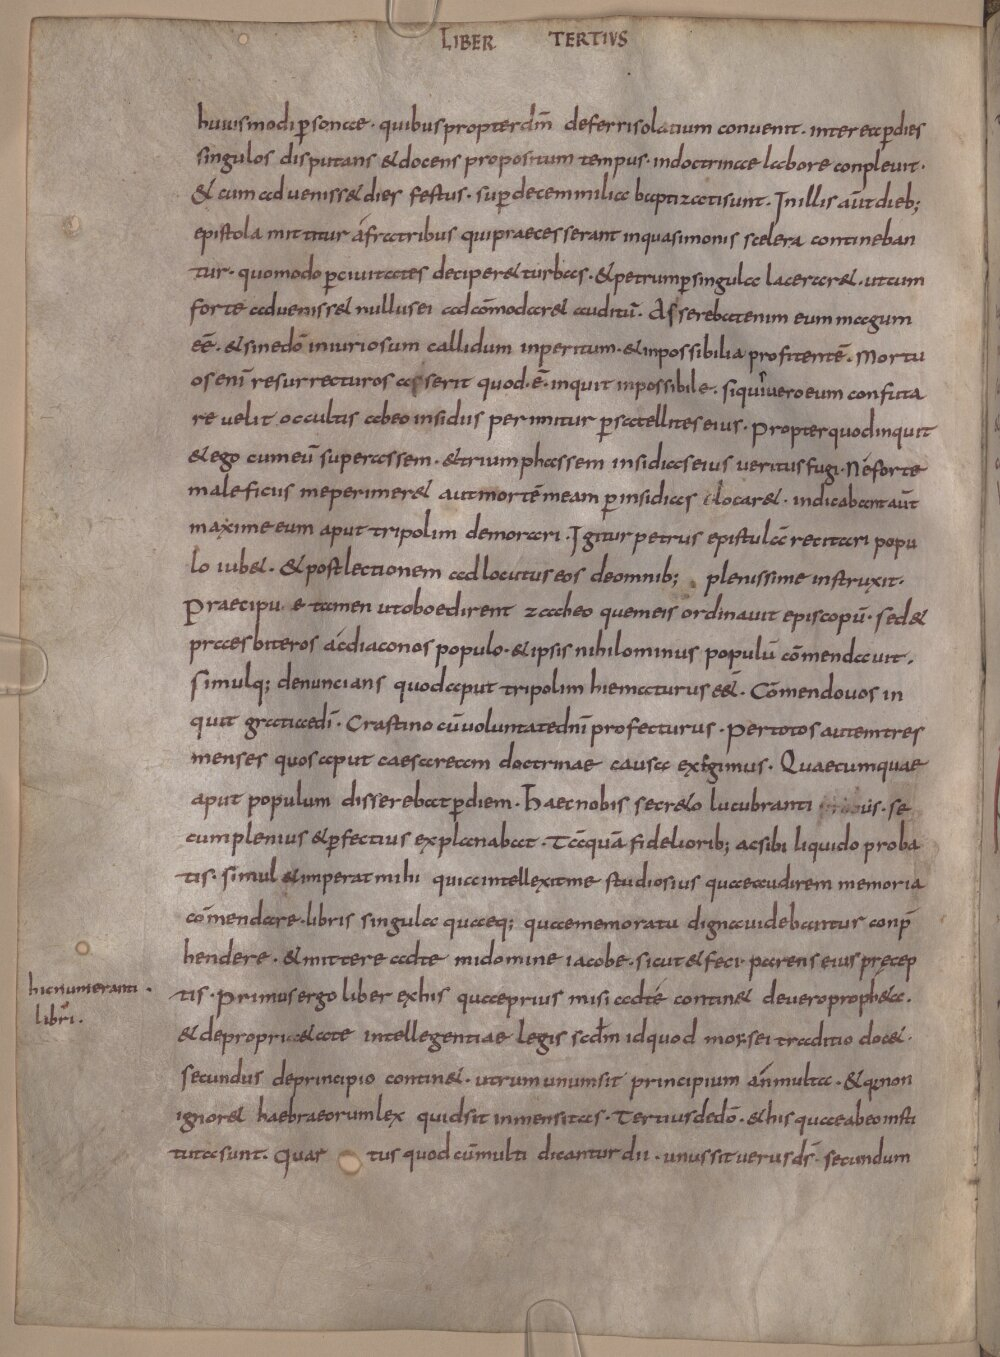 LIBER TERTIUS
huiusmodi psonae. quibus propter dm̄ deferri solatium convenit. interea p dies
singulos disputans & docens propositum tempus. in doctrinae labore conplevit.
& cum adveniss& dies festus. sup decem milia baptizati sunt. In illis aūt dieb;
epistola mittitur a fratribus qui praecesserant in qua simonis scelera contineban
tur. quomodo p civitates deciper& turbas. & petrum p singula lacerar& . ut cum
forte adveniss& nullus ei adcōmodar& auditū. Asserebat enim eum magum
eē. & sine dō iniuriosum callidum inperitum. & inpossibilia profitentē. Mortu
os enī resurrecturos asserit quod . ē . inquit inpossibile. siquis vero eum confuta
re velit occultis ab eo insidiis perimitur p satellites eius. Propter quod inquit
& ego cum eū superassem. & triumphassem insidias eius veritus fugi. Ne forte
maleficiis me perimer& aut mortē meam p insidias locar& . indicabant aūt
maxime eum aput tripolim demorari. Igitur petrus epistulā recitari popu
lo iub& . & post lectionem adlocutus eos de omnib; plenissime instruxit.
Praecipue tamen ut oboedirent zachaeo quem eis ordinavit episcopū. sed &
praesbiteros ac diaconos populo. & ipsis nihilominus populū cōmendavit.
Simulq; denuncians quod aput tripolim hiematurus ess& . Cōmendo vos in
quit gratiae dī. Crastino cū voluntate dnī profecturus. Per totos autem tres
menses quos aput caesaream doctrinae causa exegimus. Quaecumquae
aput populum disserebat p diem. haec nobis secr&o lucubranti us. se
cum plenius & pfectius explanabat. Tāquā fideliorib; ac sibi liquido proba
tis. simul & imperat mihi quia intellexit me studiosius quae audirem memoria
cōmendare. libris singula quaeq; quae memoratu digna videbantur conp̄
hendere. & mittere ad te mi domine iacobe. sicut & feci parens eius pręcep
tis. Primus ergo liber ex his quae prius misi ad te contin& de vero proph&a.
& de propri&ate intellegentiae legis scdm̄ id quod mossei traditio doc& .
secundus de principio contin& . utrum unum sit principium an multa. & q non
ignor& haebraeorum lex quid sit inmensitas. Tertius de dō. & his quae ab eo insti
tuta sunt. Quar tus quod cū multi dicantur dii . unus sit verus ds̄. secundum
hic numerantur
libri.